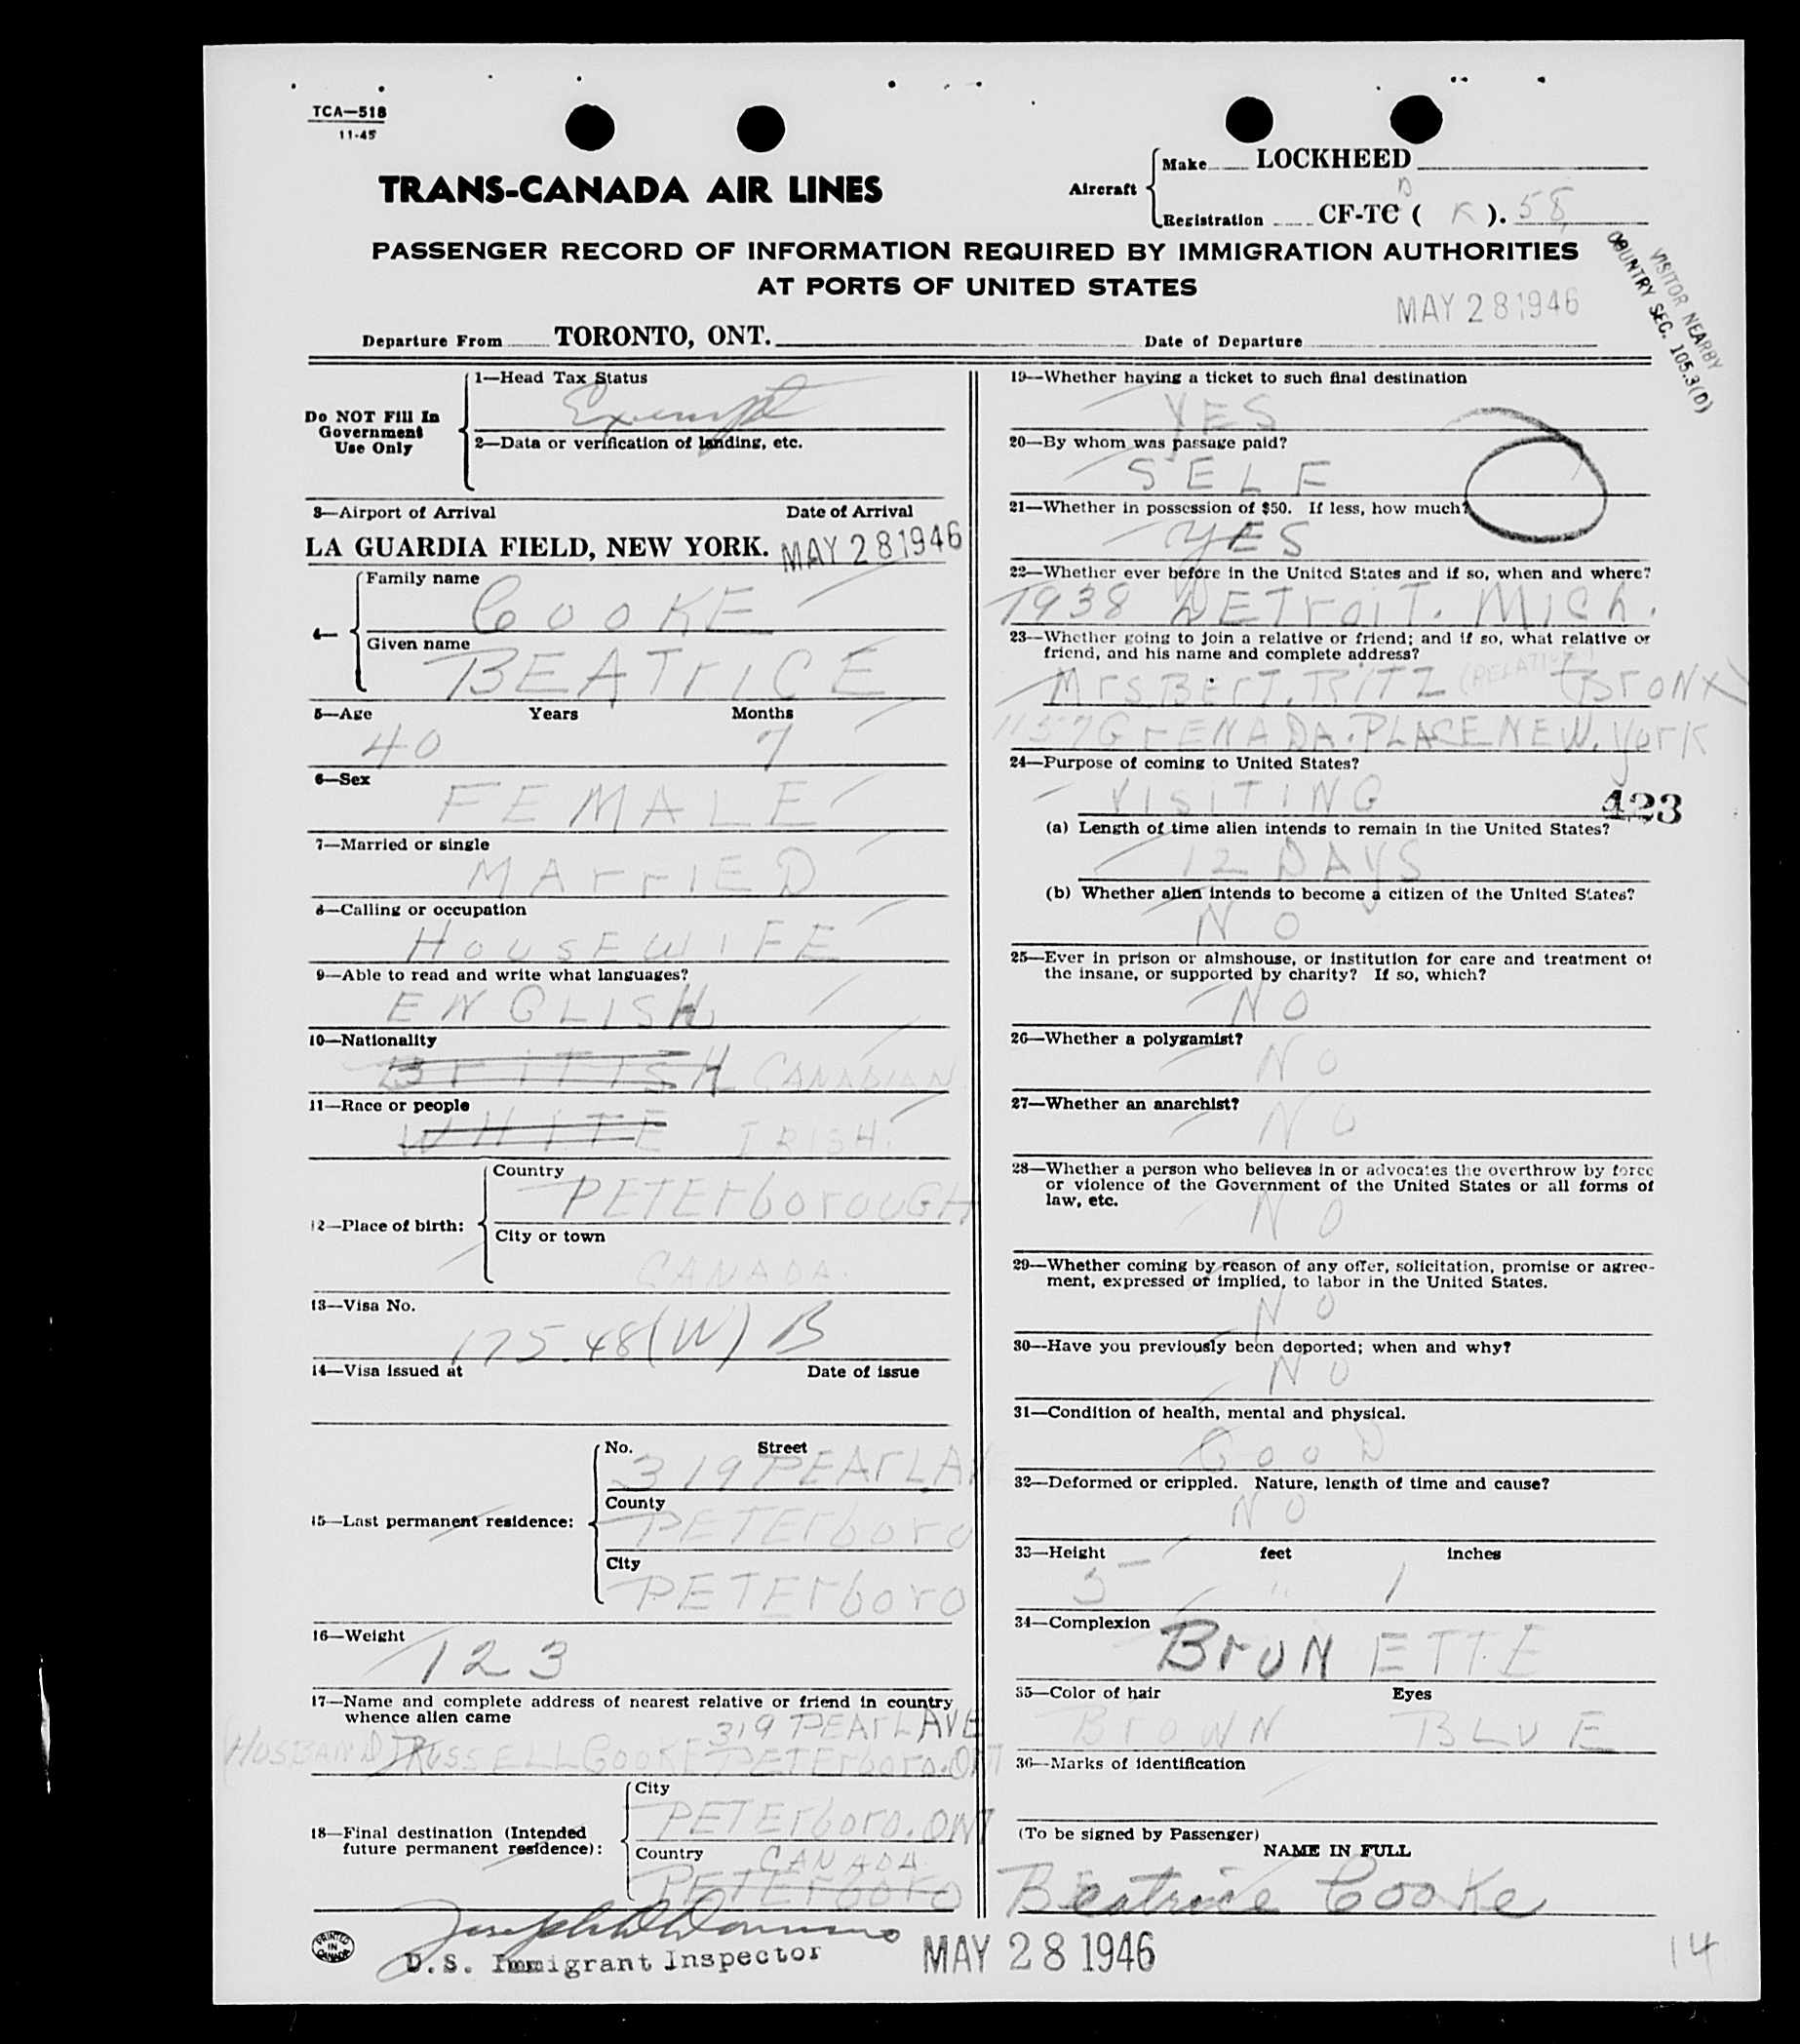 TCA—518
11-45
TRANS-CANADA AIR LINES
Aircraft
Make LOCKHEED
Registration CF-TC D ( K ). 58
PASSENGER RECORD OF INFORMATION REQUIRED BY IMMIGRATION AUTHORITIES
AT PORTS OF UNITED STATES
VISITOR NEARBY
COUNTRY SEC. 105.3(D)
MAY 28 1946
Departure From TORONTO, ONT. Date of Departure
Do NOT Fill In
Government
Use Only
1—Head Tax Status
Exempt
2—Data or verification of landing, etc.
3—Airport of Arrival Date of Arrival
LA GUARDIA FIELD, NEW YORK. MAY 28 1946
4—
Family name
COOKE
Given name
BEATrICE
5—Age Years Months
40 7
6—Sex
FEMALE
7—Married or single
MArrIED
8—Calling or occupation
HOUSEWIFE
9—Able to read and write what languages?
ENGLISH
10—Nationality
BriTISH CANADIAN
11—Race or people
WHITE IRISH.
12—Place of birth:
Country
PETErboroUGH
City or town
CANADA.
13—Visa No.
175.48(W) B
14—Visa issued at Date of issue
15—Last permanent residence:
No. Street
319 PEArL AV
County
PETErboro
City
PETErboro
16—Weight
123
17—Name and complete address of nearest relative or friend in country
whence alien came
319 PEArL AVE
(HUSBAND) RUSSELL COOKE PETErboro. ONT
18—Final destination (Intended
future permanent residence):
City
PETErboro. ONT
Country CANADA
PETErboro
U.S. Immigrant Inspector
PRINTED
IN
CANADA
MAY 28 1946
19—Whether having a ticket to such final destination
YES
20—By whom was passage paid?
SELF
21—Whether in possession of $50. If less, how much?
YES
22—Whether ever before in the United States and if so, when and where?
1938 DETroiT. MICh.
23—Whether going to join a relative or friend; and if so, what relative or
friend, and his name and complete address?
MrS. BErT. RITZ (RELATIVE) (BrONX)
1157 GrENADA. PLACE NEW. York
24—Purpose of coming to United States?
VISITING
423
(a) Length of time alien intends to remain in the United States?
12 DAYS
(b) Whether alien intends to become a citizen of the United States?
NO
25—Ever in prison or almshouse, or institution for care and treatment of
the insane, or supported by charity? If so, which?
NO
26—Whether a polygamist?
NO
27—Whether an anarchist?
NO
28—Whether a person who believes in or advocates the overthrow by force
or violence of the Government of the United States or all forms of
law, etc.
NO
29—Whether coming by reason of any offer, solicitation, promise or agree-
ment, expressed or implied, to labor in the United States.
NO
30—Have you previously been deported; when and why?
NO
31—Condition of health, mental and physical.
GOOD
32—Deformed or crippled. Nature, length of time and cause?
NO
33—Height feet inches
5 1
34—Complexion
BrUNETTE
35—Color of hair Eyes
BrOWN BLUE
36—Marks of identification
(To be signed by Passenger)
NAME IN FULL
Beatrice Cooke
14